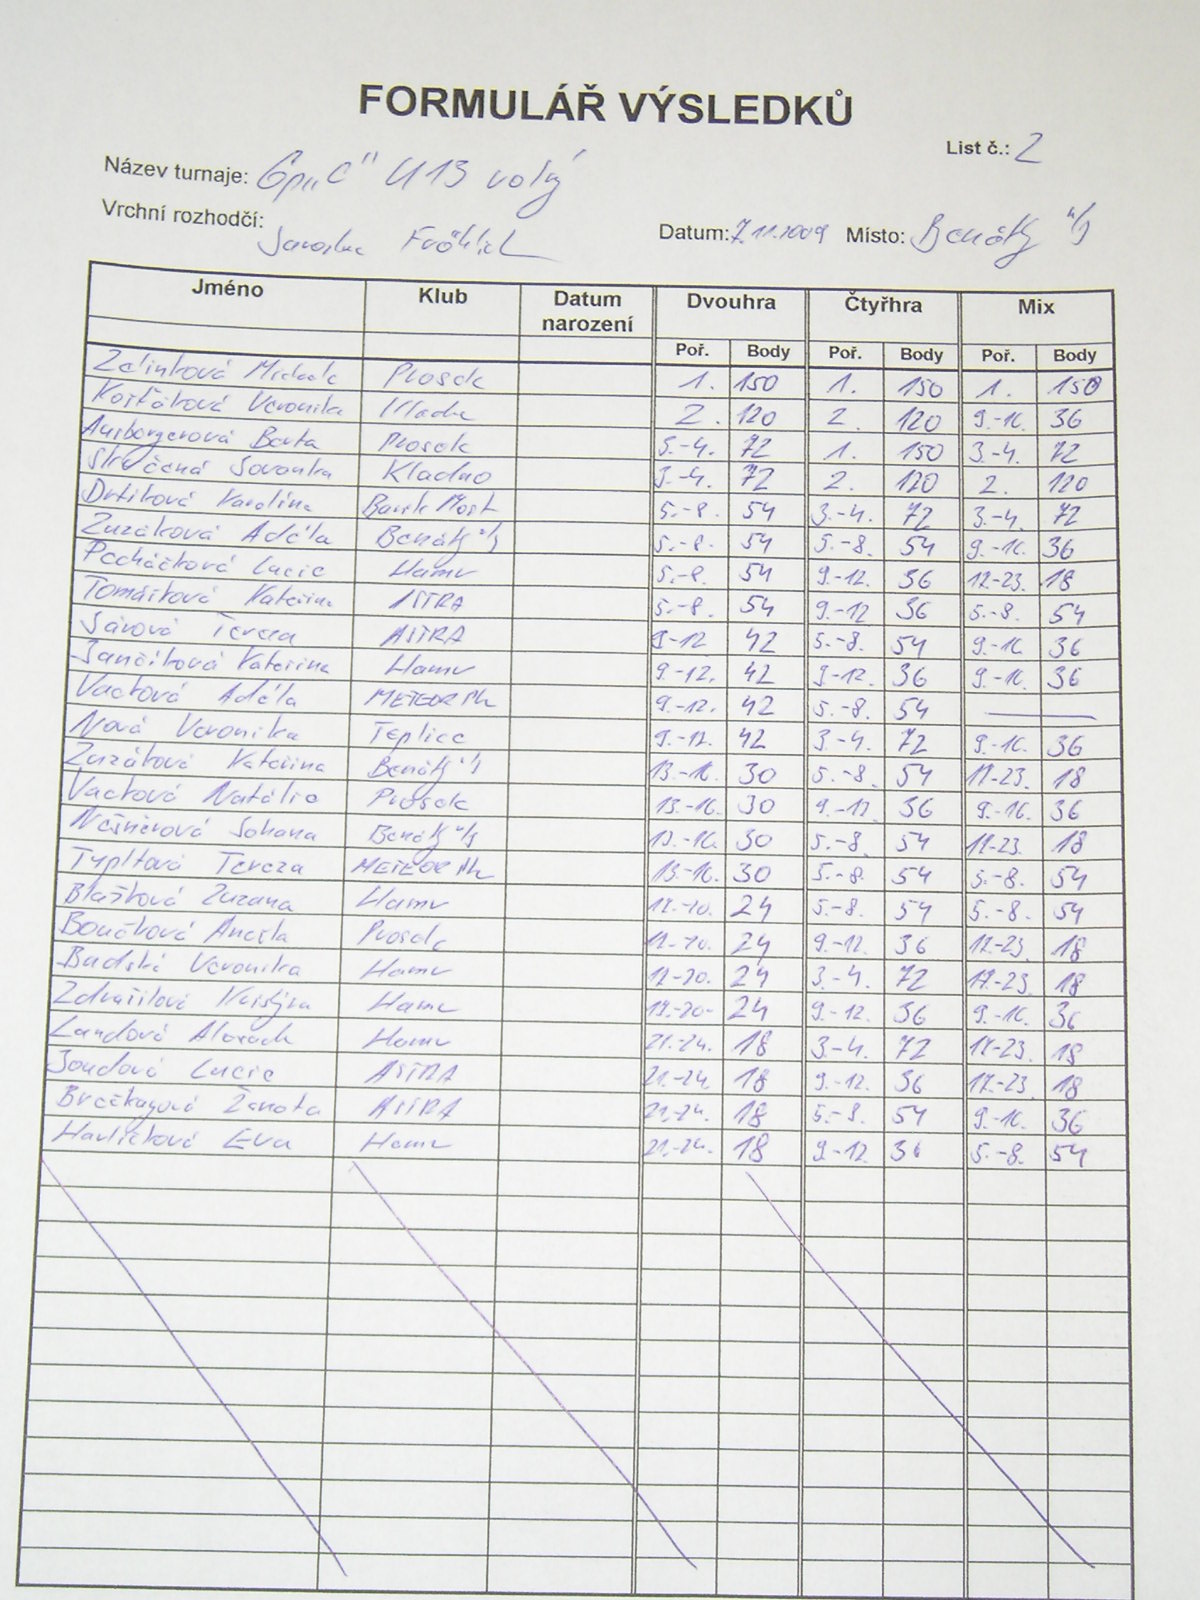 FORMULÁŘ VÝSLEDKŮ
List č.: 2
Název turnaje: Gp "C" U13 volný
Vrchní rozhodčí: Jaroslav Fröhlich Datum: 7.11.2009 Místo: Benátky n/J
Jméno Klub Datum narození Dvouhra Čtyřhra Mix
Poř. Body Poř. Body Poř. Body
Zelinková Michaela Prosek 1. 150 1. 150 1. 150
Košťáková Veronika Kladno 2. 120 2. 120 9.-16. 36
Ausbergerová Berta Prosek 3.-4. 72 1. 150 3.-4. 72
Stručená Kladno 3.-4. 72 2. 120 2. 120
Drtíková Karolína Baník Most 5.-8. 54 3.-4. 72 3.-4. 72
Zuzáková Adéla Benátky n/J 5.-8. 54 5.-8. 54 9.-16. 36
Pecháčková Lucie Hamr 5.-8. 54 9.-12. 36 17-23. 18
Tomášková Kateřina ASTRA 5.-8. 54 9.-12 36 5.-8. 54
Sárová Tereza ASTRA 9-12 42 5.-8. 54 9.-16 36
Jančíková Kateřina Hamr 9.-12. 42 9-12. 36 9.-16. 36
Vachová Adéla METEOR Ph 9.-12. 42 5.-8. 54
Nová Veronika Teplice 9.-12. 42 3-4. 72 9.-16. 36
Zuzáková Kateřina Benátky n/J 13.-16. 30 5.-8. 54 17-23. 18
Vachová Natálie Prosek 13.-16. 30 9.-12. 36 9.-16. 36
Johana Benátky n/J 13.-16. 30 5.-8. 54 17-23. 18
Typltová Tereza METEOR Ph 13.-16. 30 5.-8. 54 5.-8. 54
Blašková Zuzana Hamr 17.-20. 24 5.-8. 54 5.-8. 54
Boučková Aneta Prosek 17.-20. 24 9.-12. 36 17-23. 18
Budská Veronika Hamr 17-20. 24 3-4. 72 17.-23. 18
Zdražilová Kristýna Hamr 17.-20. 24 9.-12. 36 9.-16. 36
Landová Hamr 21.-24. 18 3-4. 72 17-23. 18
Joudová Lucie ASTRA 21-24. 18 9.-12. 36 17.-23 18
Žaneta ASTRA 21-24. 18 5.-8. 54 9.-16. 36
Havlíčková Eva Hamr 21.-24. 18 9.-12. 36 5.-8. 54